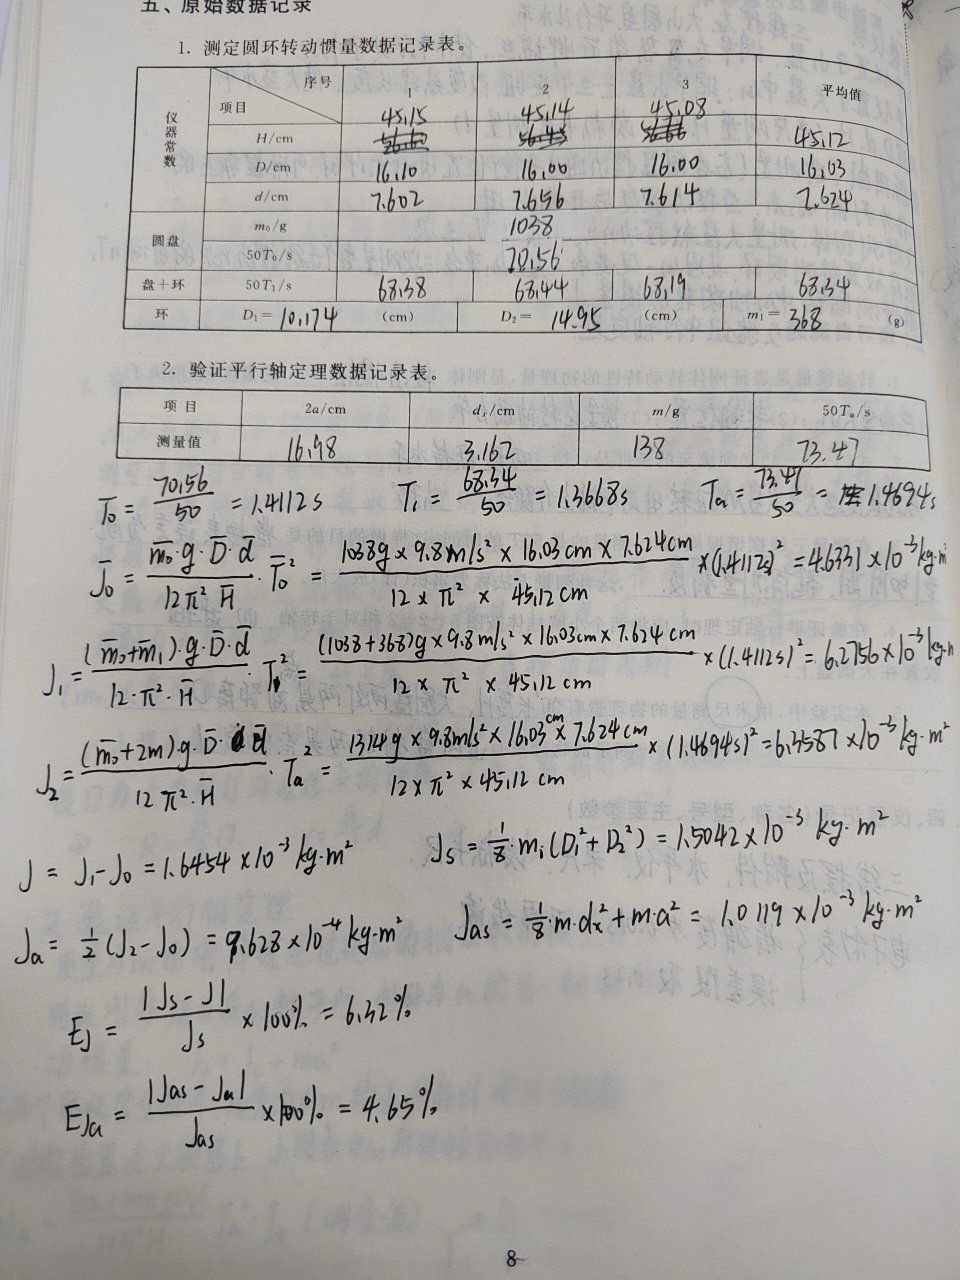 五、原始数据记录
1. 测定圆环转动惯量数据记录表。
仪器常数 项目 序号 1 2 3 平均值
H/cm 45.15 45.14 45.08 45.12
D/cm 16.10 16.00 16.00 16.03
d/cm 7.602 7.656 7.614 7.624
圆盘 m₀/g 1038
50T₀/s 70.56
盘+环 50T₁/s 68.38 68.44 68.19 68.34
环 D₁= 10.174 (cm) D₂= 14.95 (cm) m₁= 368 (g)
2. 验证平行轴定理数据记录表。
项目 2a/cm dₓ/cm m/g 50Tₐ/s
测量值 16.98 3.162 138 73.47
T̄₀ = 70.56/50 = 1.4112s T̄₁ = 68.34/50 = 1.3668s T̄ₐ = 73.47/50 = 1.4694s
J̄₀ = (m̄₀·g·D̄·d̄)/(12π²H̄) · T̄₀² = (1038g × 9.8m/s² × 16.03cm × 7.624cm)/(12 × π² × 45.12cm) × (1.4112s)² = 4.6331 × 10⁻³ kg·m²
J₁ = ((m̄₀+m̄₁)·g·D̄·d̄)/(12·π²·H̄) · T₀² = ((1038+368)g × 9.8m/s² × 16.03cm × 7.624cm)/(12 × π² × 45.12cm) × (1.4112s)² = 6.2756 × 10⁻³ kg·m
J₂ = ((m̄₀+2m)g·D̄·d̄)/(12π²·H̄) · T̄ₐ² = (1314g × 9.8m/s² × 16.03cm × 7.624cm)/(12×π²×45.12cm) × (1.4694s)² = 6.5587 × 10⁻³ kg·m²
J = J₁-J₀ = 1.6454 × 10⁻³ kg·m² Js = 1/8·m₁(D₁²+D₂²) = 1.5042 × 10⁻³ kg·m²
Jₐ = 1/2(J₂-J₀) = 9.628 × 10⁻⁴ kg·m² Jas = 1/8·m·dₓ²+m·a² = 1.0119 × 10⁻³ kg·m²
EJ = |Js-J|/Js × 100% = 6.32%
EJa = |Jas-Ja|/Jas × 100% = 4.65%
8